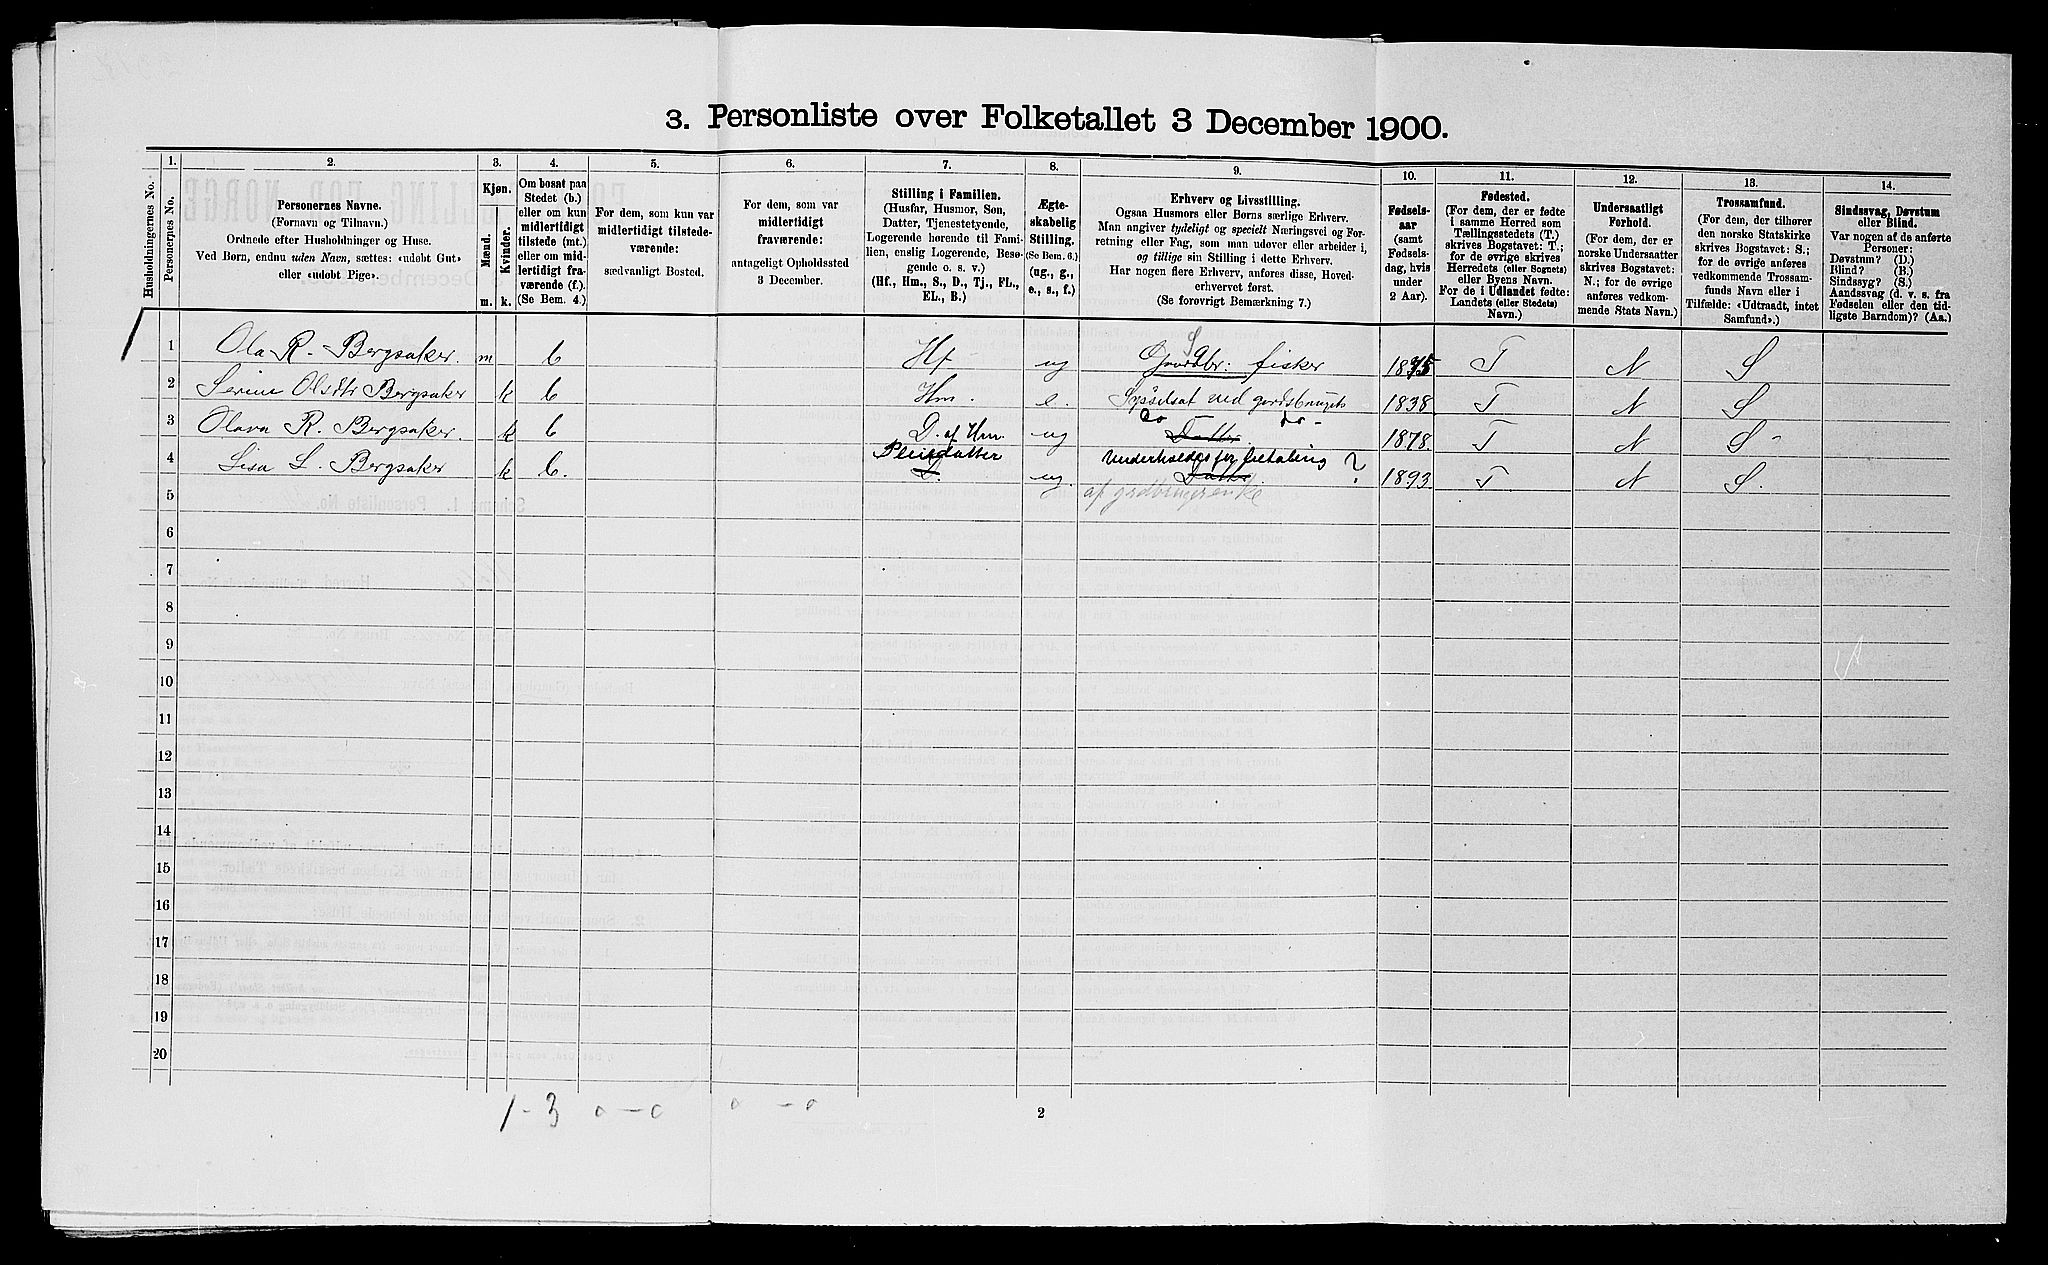 3. Personliste over Folketallet 3 December 1900.
Husholdningernes No.
1.
Personernes No.
2.
Personernes Navne.
(Fornavn og Tilnavn.)
Ordnede efter Husholdninger og Huse.
Ved Børn, endnu uden Navn, sættes: «udøbt Gut»
eller «udøbt Pige».
3.
Kjøn.
Mænd.
Kvinder.
m.
k.
4.
Om bosat paa
Stedet (b.)
eller om kun
midlertidigt
tilstede (mt.)
eller om mid-
lertidigt fra-
værende (f.)
(Se Bem. 4.)
5.
For dem, som kun var
midlertidigt tilstede-
værende:
sædvanligt Bosted.
6.
For dem, som var
midlertidigt
fraværende:
antageligt Opholdssted
3 December.
7.
Stilling i Familien.
(Husfar, Husmor, Søn,
Datter, Tjenestetyende,
Logerende hørende til Fami-
lien, enslig Logerende, Besø-
gende o. s. v.)
(Hf., Hm., S., D., Tj., FL.,
EL., B.)
8.
Ægte-
skabelig
Stilling.
(Se Bem. 6.)
(ug., g.,
e., s., f.)
9.
Erhverv og Livsstilling.
Ogsaa Husmors eller Børns særlige Erhverv.
Man angiver tydeligt og specielt Næringsvei og For-
retning eller Fag, som man udøver eller arbeider i,
og tillige sin Stilling i dette Erhverv.
Har nogen flere Erhverv, anføres disse, Hoved-
erhvervet først.
(Se forøvrigt Bemærkning 7.)
10.
Fødsels-
aar
(samt
Fødsels-
dag, hvis
under
2 Aar).
11.
Fødested.
(For dem, der er fødte
i samme Herred som
Tællingsstedets (T.)
skrives Bogstavet: T.;
for de øvrige skrives
Herredets (eller Sognets)
eller Byens Navn.
For de i Udlandet fødte:
Landets (eller Stedets)
Navn.)
12.
Undersaatligt
Forhold.
(For dem, der er
norske Undersaatter
skrives Bogstavet:
N.; for de øvrige
anføres vedkom-
mende Stats Navn.)
13.
Trossamfund.
(For dem, der tilhører
den norske Statskirke
skrives Bogstavet: S.;
for de øvrige anføres
vedkommende Trossam-
funds Navn eller i
Tilfælde: «Udtraadt, intet
Samfund».)
14.
Sindssvag, Døvstum
eller Blind.
Var nogen af de anførte
Personer:
Døvstum? (D.)
Blind? (B.)
Sindssyg? (S.)
Aandssvag (d. v. s. fra
Fødselen eller den tid-
ligste Barndom)? (Aa.)
1 Ola R. Bergsaker. m b Hf ug S Gaardbr: fisker 1875 T N S
2 Serine Olsdtr Bergsaker k b Hm. e. Sysselsat ved gardsbruget 1838 T N S
3 Olava R. Bergsaker. k b D. af Hm. ug do do - Datter. 1878. T N S
4 Lisa L. Bergsaker k b. Pleiedatter D. ug. Underholdes for betaling ? Datter 1893. T N S.
5 af grdbrugerenke
6
7
8
9
10
11
12
13
14
15
16
17
18
19
20
1 - 3 0 - 0 0 - 0
2